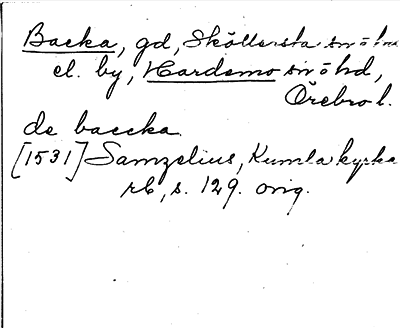 Backa, gd, Sköllersta sn ö hd
el. by, Hardemo sn ö hd,
Örebro l.
de baecka
[1531] Samzelius, Kumla kyrka
rb, s. 129. orig.